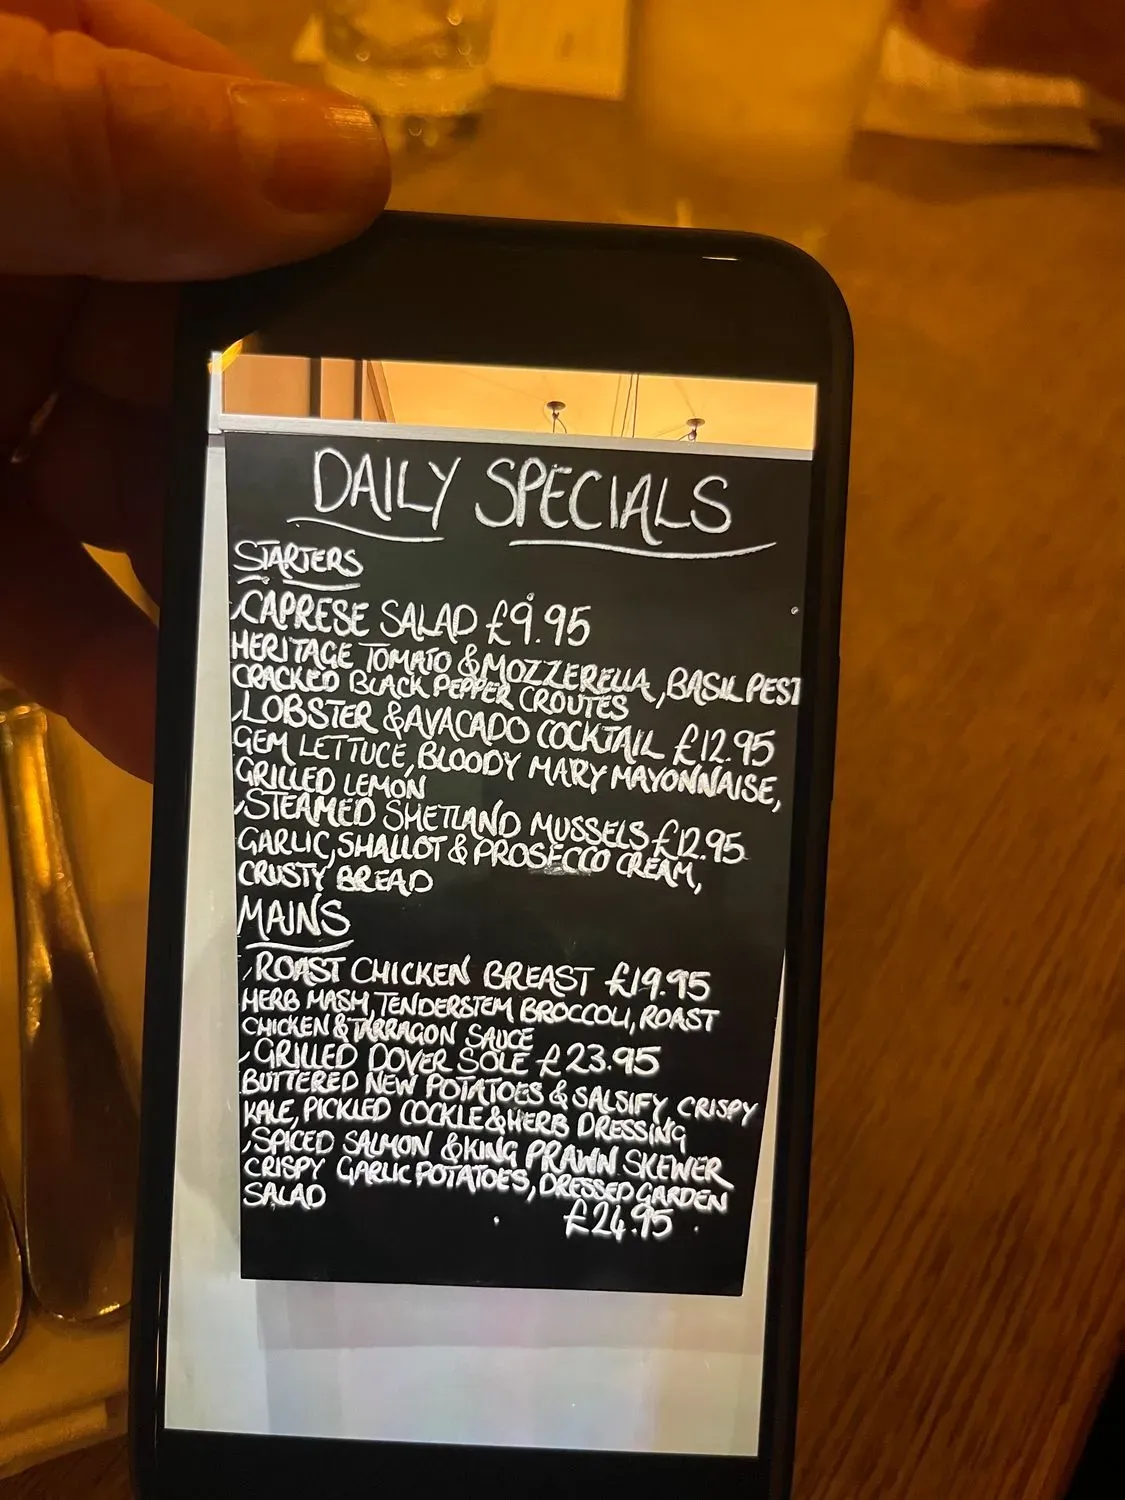 DAILY SPECIALS
STARTERS
CAPRESE SALAD £9.95
HERITAGE TOMATO & MOZZERELLA, BASIL PEST
CRACKED BLACK PEPPER CROUTES
LOBSTER & AVACADO COCKTAIL £12.95
GEM LETTUCE, BLOODY MARY MAYONNAISE,
GRILLED LEMON
STEAMED SHETLAND MUSSELS £12.95
GARLIC, SHALLOT & PROSECCO CREAM,
CRUSTY BREAD
MAINS
ROAST CHICKEN BREAST £19.95
HERB MASH, TENDERSTEM BROCCOLI, ROAST
CHICKEN & TARRAGON SAUCE
GRILLED DOVER SOLE £23.95
BUTTERED NEW POTATOES & SALSIFY CRISPY
KALE, PICKLED COCKLE & HERB DRESSING
SPICED SALMON & KING PRAWN SKEWER
CRISPY GARLIC POTATOES, DRESSED GARDEN
SALAD
£24.95